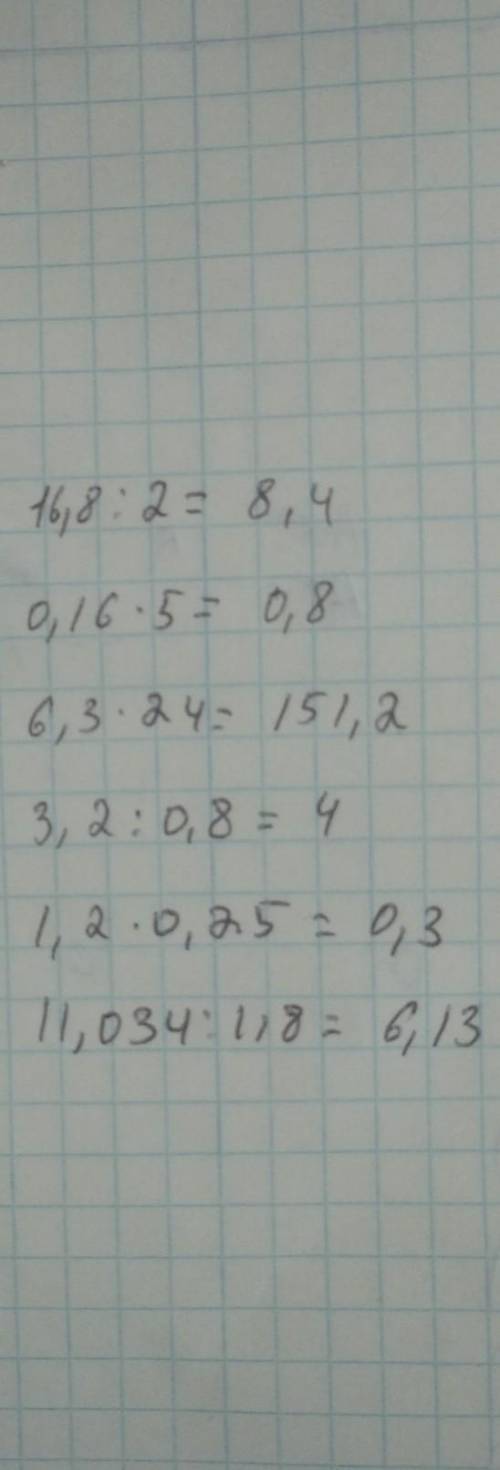 16,8 : 2 = 8,4
0,16 · 5 = 0,8
6,3 · 24 = 151,2
3,2 : 0,8 = 4
1,2 · 0,25 = 0,3
11,034 : 1,8 = 6,13